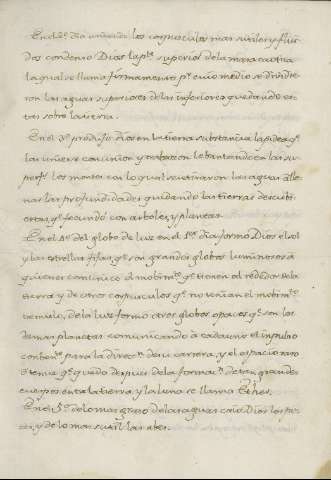 En el 2º dia uniendo los corpusculos mas sutiles y flui
dos condenso Dios la pte superior de la masa caotica
la qual se llama firmamento pr cuio medio se dividie
ron las aguas superiores de las inferiores quedando es
tas sobre la tierra.
En el 3º produjo Dios en la tierra substancia lapidea qe
las uniese con union y trabazon lebantando en las su-
perfs los montes con lo qual se retiraron las aguas a lle-
nar las profundidades quedando las tierras descubi-
ertas, qe fecundó con arboles, y plantas.
En el 4º del globo de luz en el 1er dia formó Dios el sol
y las estrellas fixas, qe son grandes globos luminosos á
quienes comunicó el mobimto qe tienen al rededor de la
tierra y de otros corpusculos qe no tenian el mobimto
tremulo, de la luz formó otros globos opacos qe son los
demas planetas comunicando á cada uno el impulso
conbente para la direcn de su carrera, y el espacio raro
y tenue qe quedó despues de la formacn de tan grandes
cuerpos entre la tierra, y la luna se llama Ether.
En el 5º de lo mas graso de las aguas crió Dios los pe-
ces, y de lo mas sutil las abes.